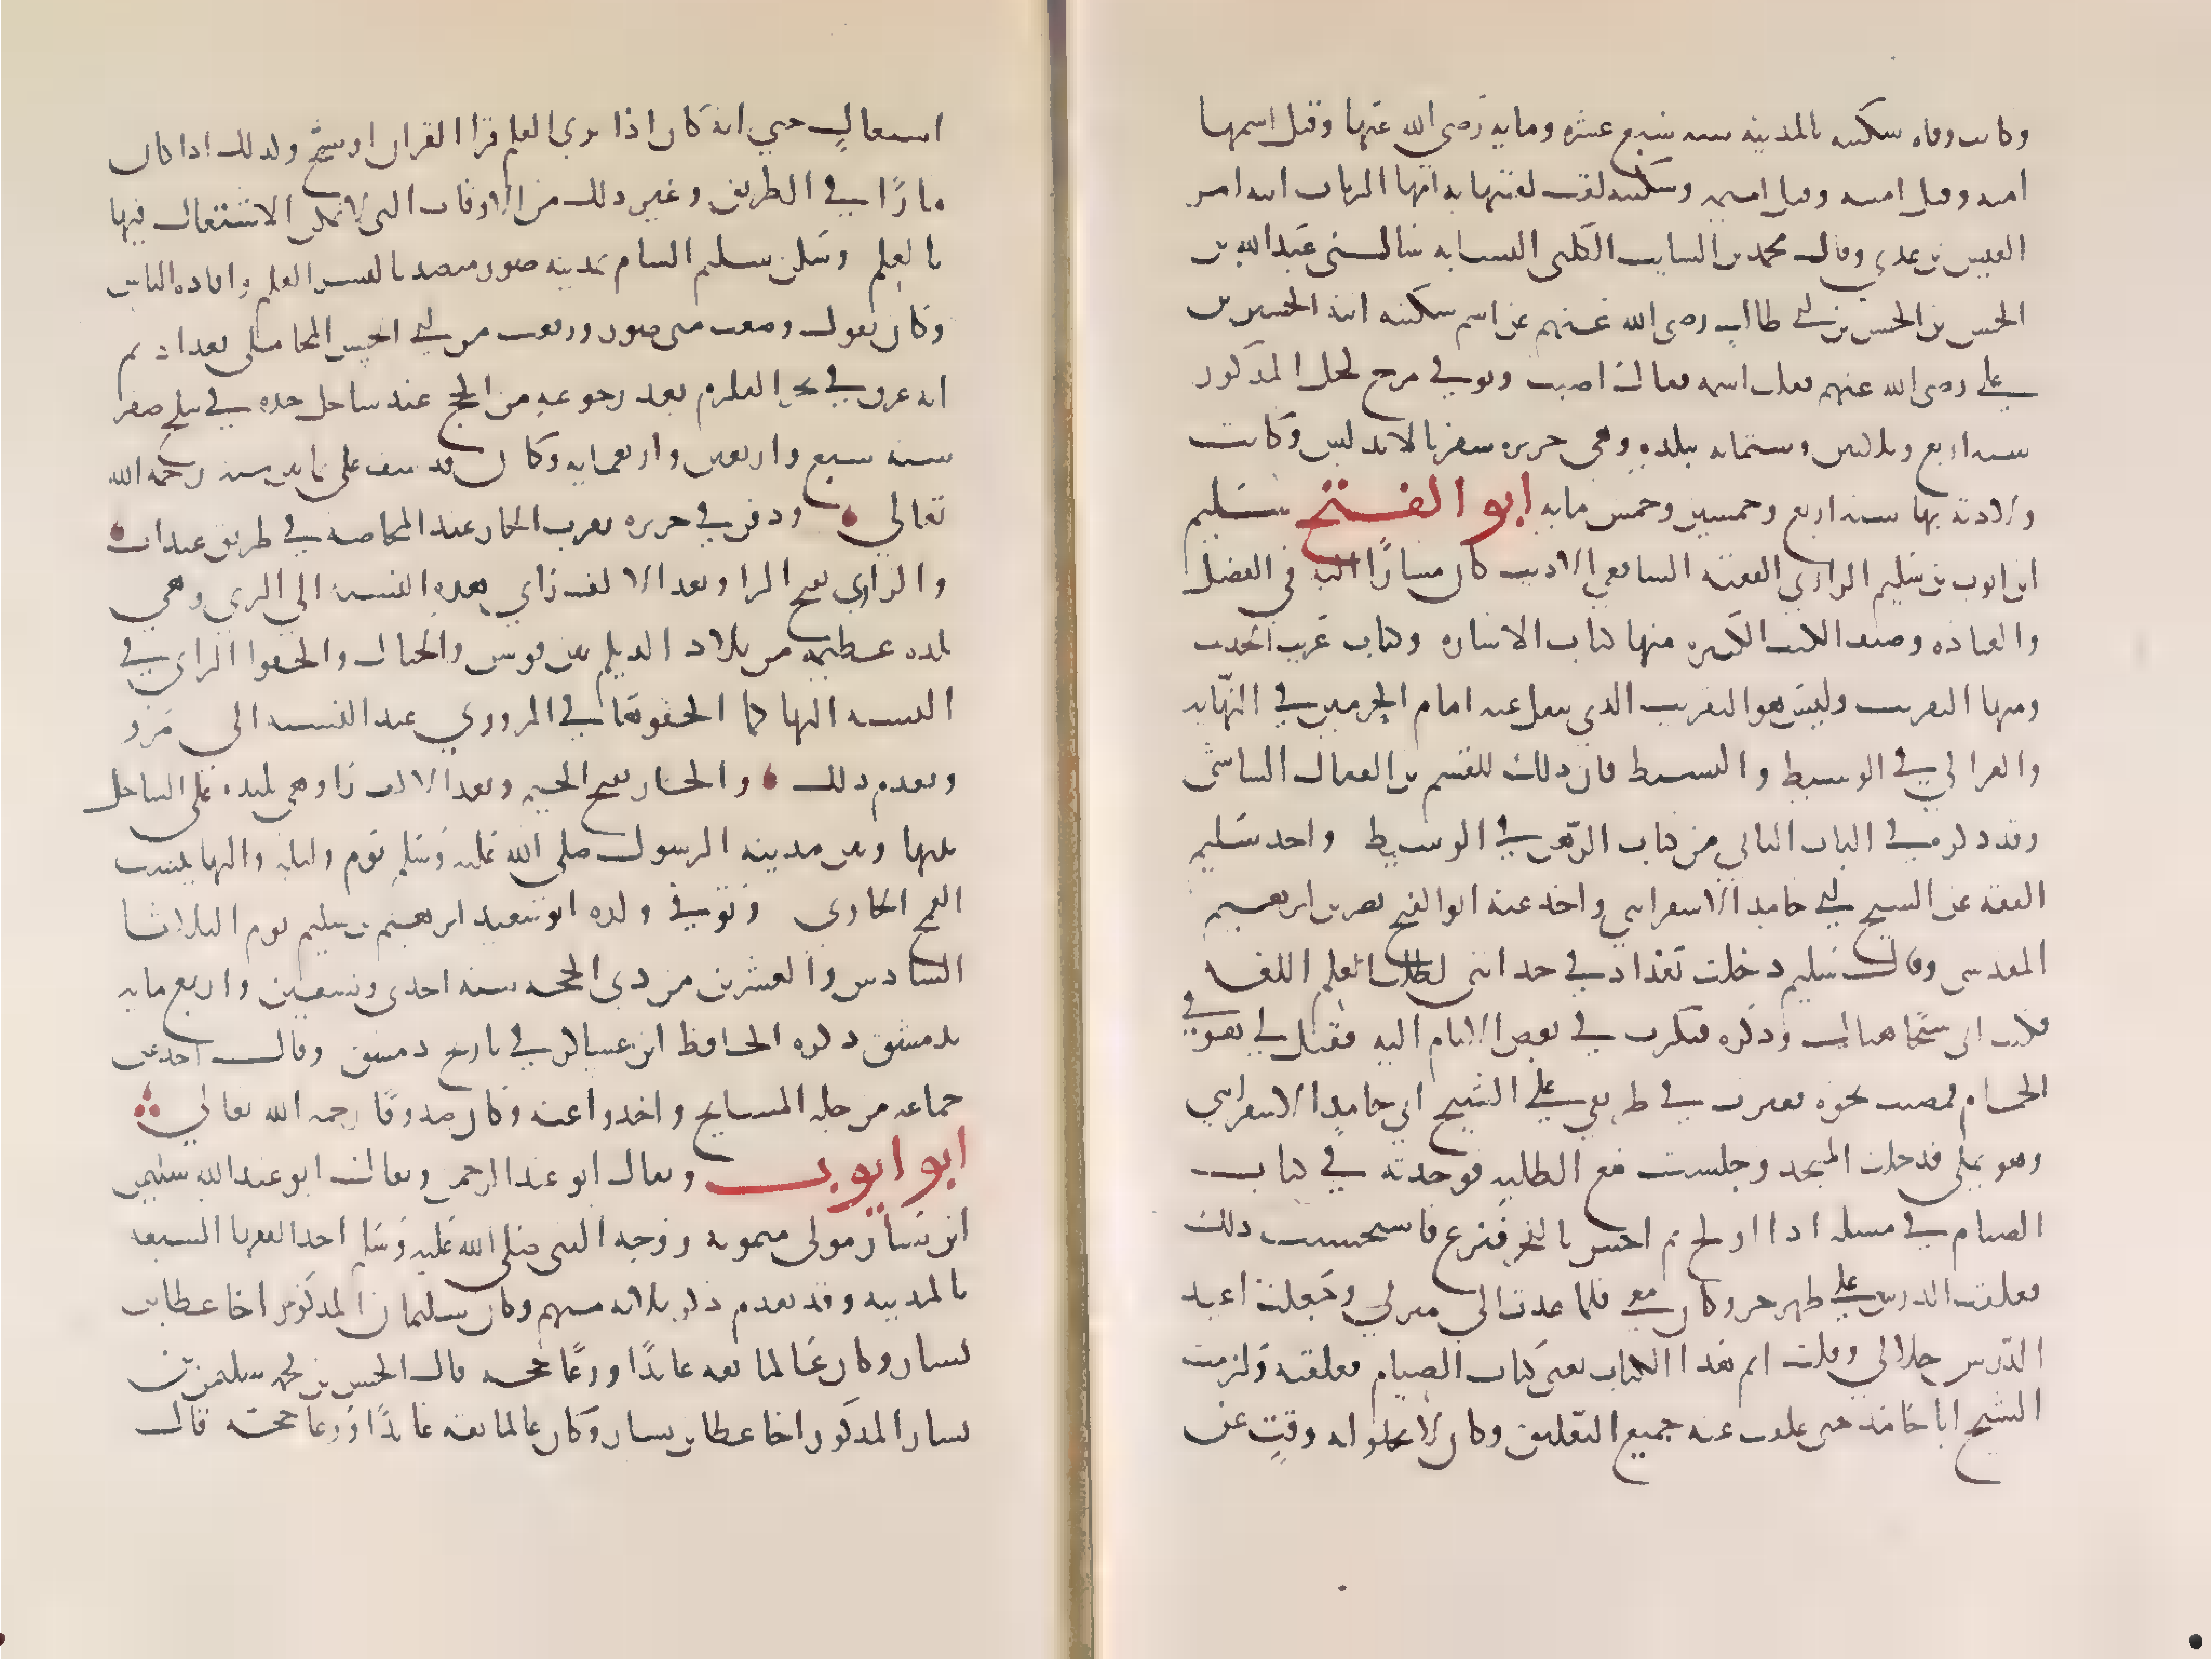 وكانت وفاه سكينه بالمدينه سنه سبع عشره ومايه رضى الله عنها وقيل اسمها
امنه وقيل امينه وقيل اميمه وسكينه لقب لقبتها به امها الرباب ابنه امر
القيس بن عدي وقال محمد بن السايب الكلبى النسابه سالنى عبد الله بن
الحسن بن الحسن بن علي طالب رضى الله عنهم عن اسم سكينه ابنه الحسين بن
علي رضى الله عنهم فقلت اميمه فقال اصبت وتوفي مرج لحل المذكور
سنه اربع وثلاثين وستمايه ببلده وهي جزيره سقر بالاندلس وكانت
ولادته بها سنه اربع وخمسين وخمس مايه ابو الفتح سليم
ابن ايوب بن سليم الرازي الفقيه الشافعي الاديب كان مشارًا اليه في الفضل
والعباده وصنف الكتب الكثيره منها كتاب الاشاره وكتاب غريب الحديث
ومنها التقريب وليس هو التقريب الذي ينقل عنه امام الحرمين في النهايه
والغزالي في الوسيط والبسيط فان ذلك للقسم بن القفال الشاشى
وقد ذكره في الباب الثاني من كتاب الرهن في الوسيط واخذ سليم
الفقه عن الشيخ ابي حامد الاسفرايني واخذ عنه ابو الفتح نصر بن ابرهيم
المقدسى وقال سليم دخلت بغداد في حداثتى لطلب علم اللغه
فكنت اتى شيخًا هناك وذكره فبكرت في بعض الايام اليه فقيل لي هو في
الحمام فمضيت نحوه فعبرت في طريقي علي الشيخ ابي حامد الاسفرايني
وهو يملي فدخلت المسجد وجلست مع الطلبه فوجدته في كتاب
الصيام في مسله اذا اولج ثم احس بالفجر فنزع فاستحسنت ذلك
فعلقت الدرس علي ظهر جزو كان معي فلما عدت الى منزلي وجعلت اعيد
الدرس حلالي وقلت اتم هذا الكتاب يعنى كتاب الصيام فعلقته ولزمت
الشيخ ابا حامد حتى علقت عنه جميع التعليق وكان لا يخلو له وقت عن
اشتغال حتي انه كان اذا بري القلم قرا القران او سبح وكذلك اذا كان
مارًا في الطريق وغير ذلك من الاوقات التى لا يمكن الاشتغال فيها
بالعلم وسكن سليم الشام بمدينه صور متصديا لنشر العلم وافاده الناس
وكان يقول وضعت منى صور ورفعت من ابي الحسن المحاملى بغداد ثم
انه غرق في بحر القلزم بعد رجوعه من الحج عند ساحل جده في سلخ صفر
سنه سبع واربعين واربعمايه وكان قد نيف على ثمانين سنه رحمه الله
تعالي ودفن في جزيره بقرب الجار عند المخاضه في طريق عيذاب
والرازي بفتح الرا وبعد الالف زاي هذه النسبه الي الري وهي
بلده عظيمه من بلاد الديلم بين قومس والجبال والحقوا الزاي في
النسبه اليها كما الحقوها في المروزي عند النسبه الى مرو
وتقدم ذلك والجار بفتح الجيم وبعد الالف را وهي بليده على الساحل
بينها وبين مدينه الرسول صلى الله عليه وسلم يوم وليله واليها ينسب
القمح الجاري وتوفي ولده ابو سعيد ابرهيم بن سليم يوم الثلاثا
السادس والعشرين من ذي الحجه سنه احدى وتسعين واربع مايه
بدمشق ذكره الحافظ ابن عساكر في تاريخ دمشق وقال اخذ عن
جماعه من جله المشايخ واخذوا عنه وكان صدوقًا رحمه الله تعالي
ابو ايوب ويقال ابو عبد الرحمن ويقال ابو عبد الله سليمن
ابن يسار مولى ميمونه زوجه النبى صلى الله عليه وسلم احد الفقها السبعه
بالمدينه وقد تقدم ذكر ثلاثه منهم وكان سليمان المذكور اخا عطا بن
يسار وكان عالما ثقه عابدًا ورعًا حجه قال الحسن بن محمد سليمن بن
يسار المذكور اخا عطا بن يسار وكان عالما ثقه عابدًا ورعا حجته قال